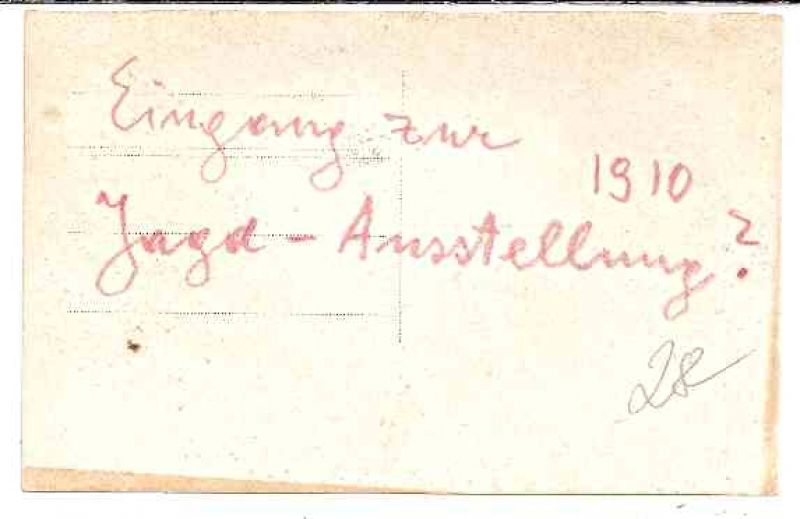 Eingang zur
1910
Jagd - Ausstellung?
28